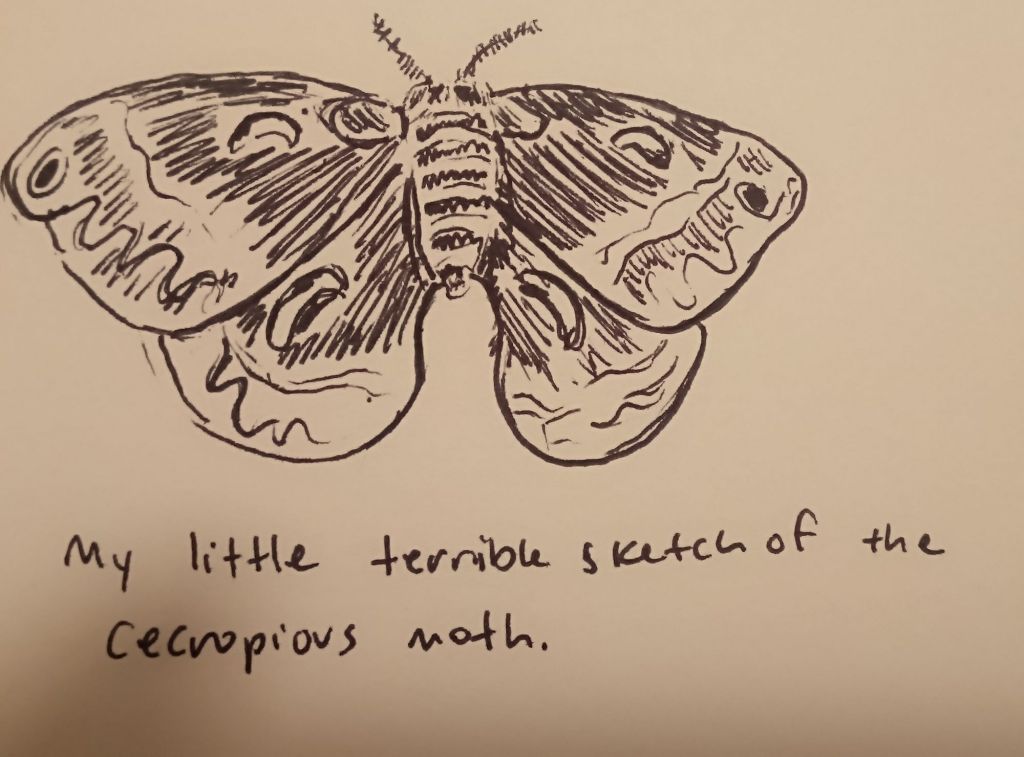 My little terrible sketch of the
Cecropious moth.